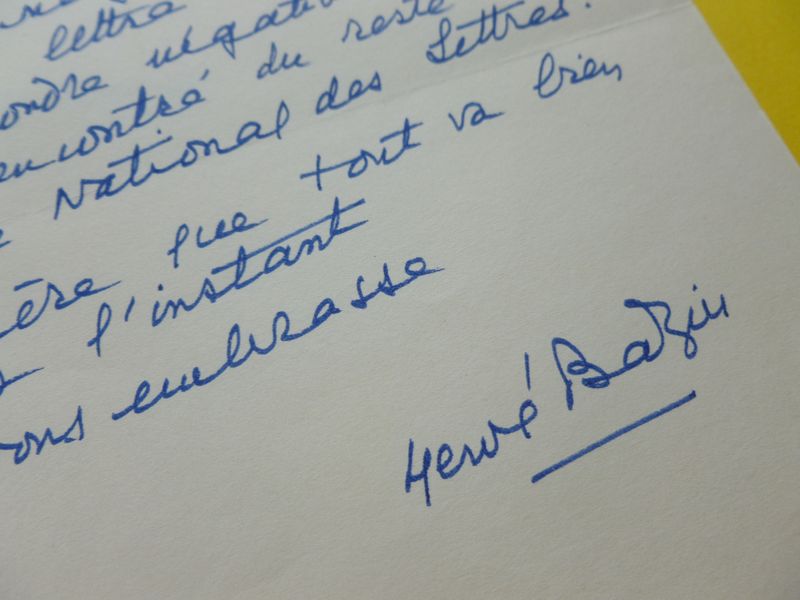 lettre
ondre négativ
encontré du reste
National des Lettres.
ère que tout va bien
l'instant
ous embrasse
Hervé Bazin